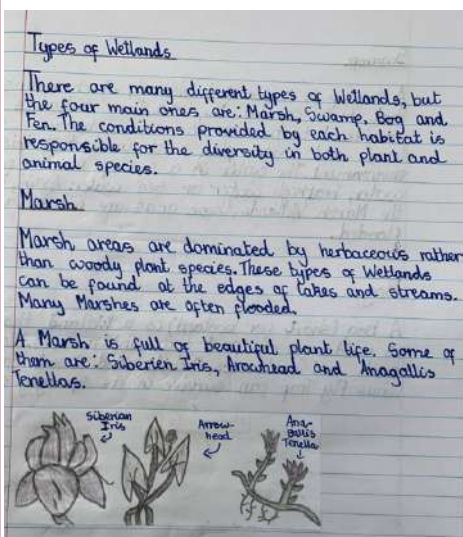 Types of Wetlands
There are many different types of Wetlands, but
the four main ones are: Marsh, Swamp. Bog and
Fen. The conditions provided by each habitat is
responsible for the diversity in both plant and
animal species.
Marsh
Marsh areas are dominated by herbaceous rather
than woody plant species. These types of Wetlands
can be found at the edges of lakes and streams.
Many Marshes are often flooded.
A Marsh is full of beautiful plant life. Some of
them are: Siberien Iris, Arowhead and Anagallis
Tenellas.
Siberian
Iris
Arrow-
head
Ana-
gallis
Tenella